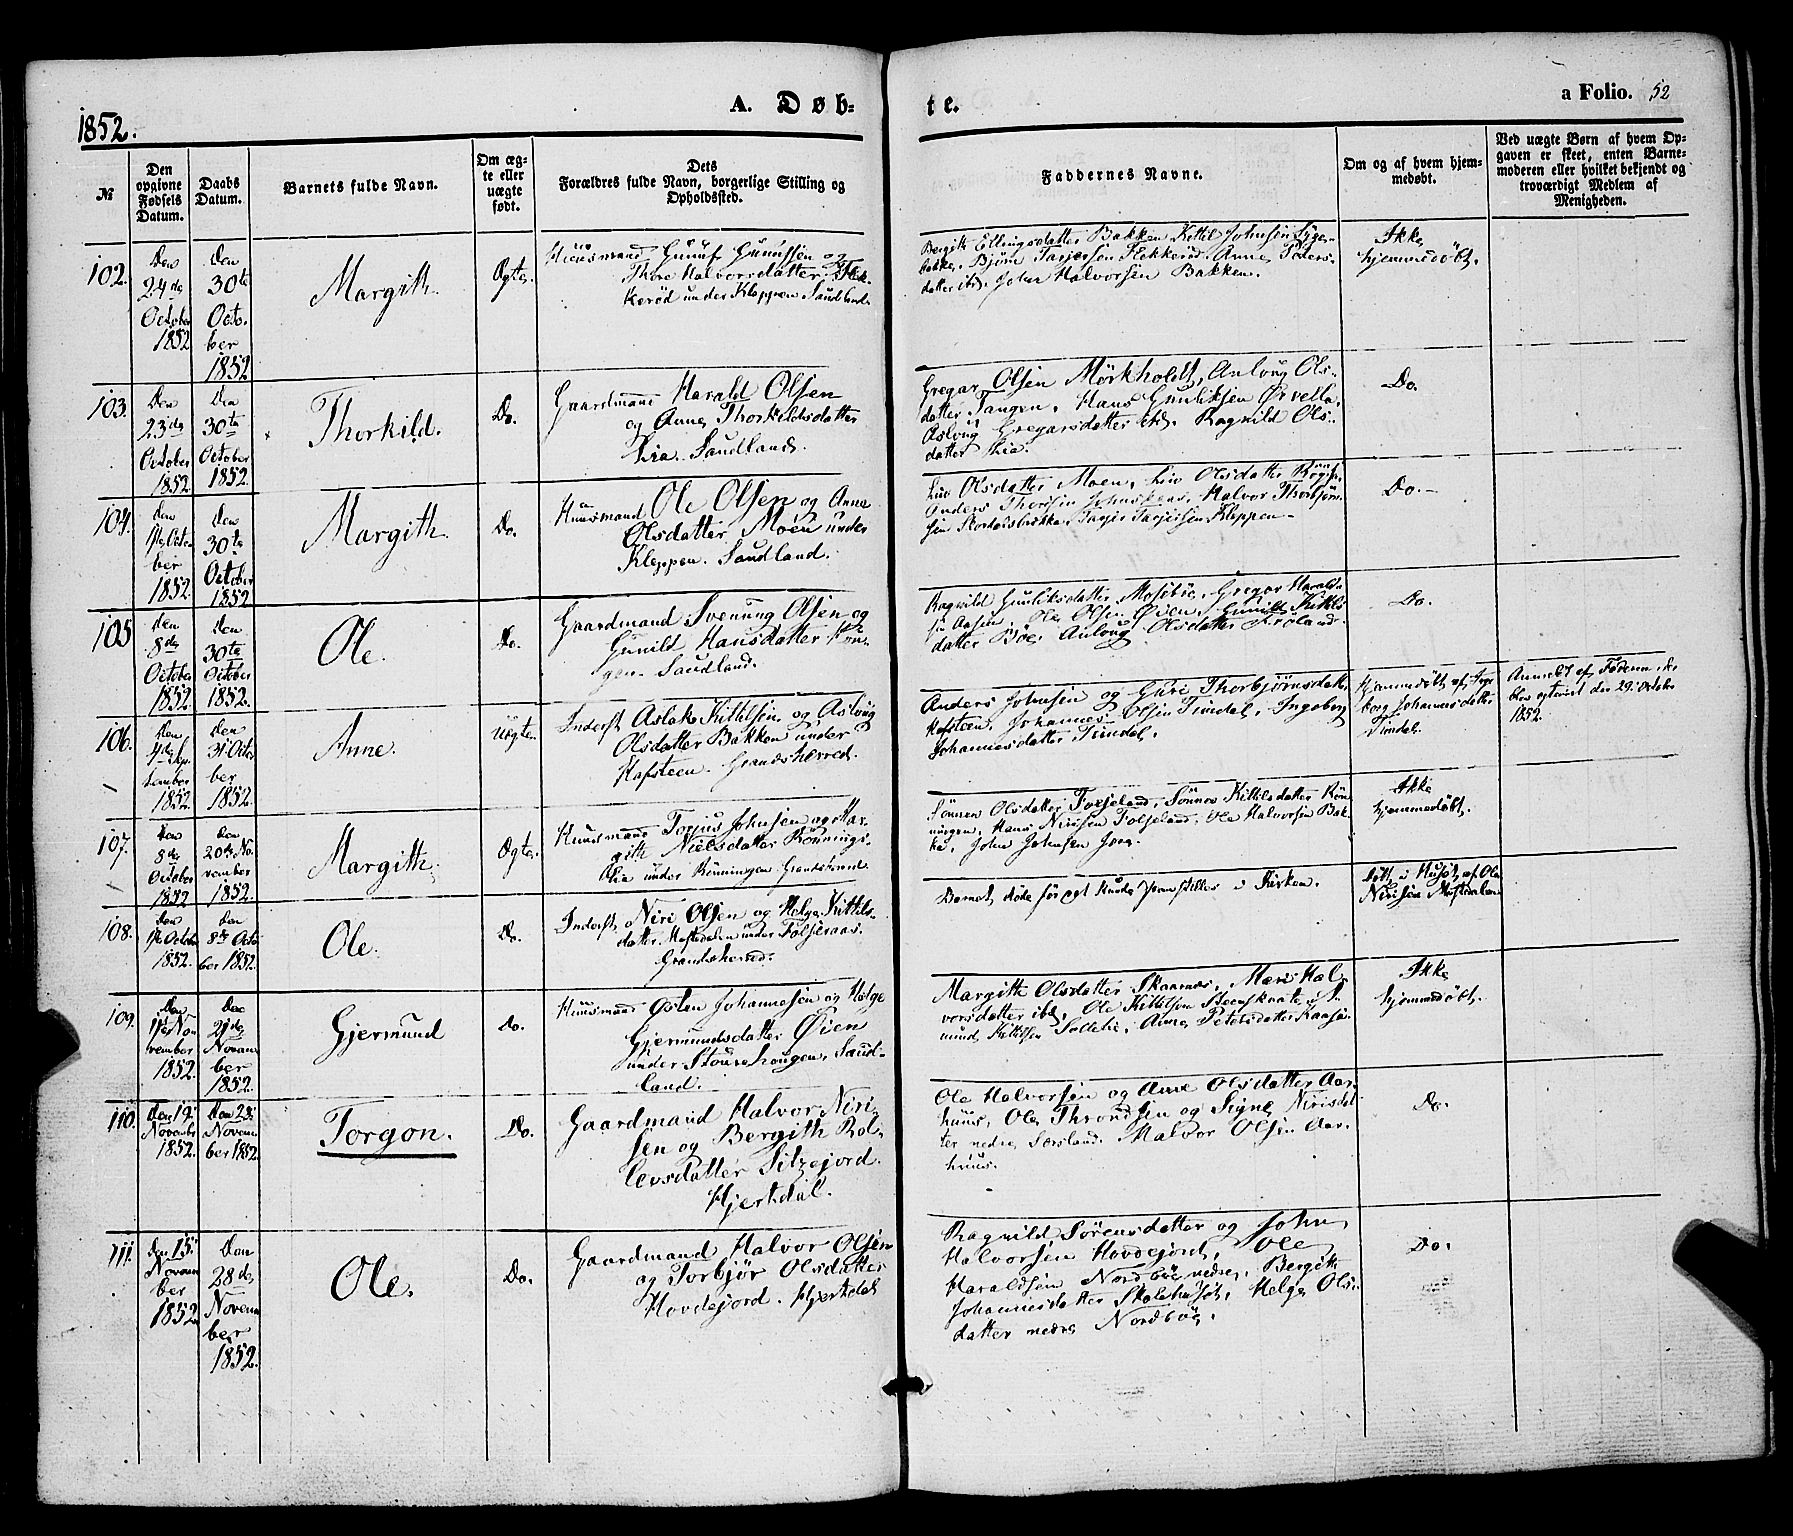 1852.
A. Døb-
te.
a Folio. 52
№
Den opgivne Fødsels Datum.
Daabs Datum.
Barnets fulde Navn.
Om ægte eller uægte født.
Dets Forældres fulde Navn, borgerlige Stilling og Opholdssted.
Faddernes Navne.
Om og af hvem hjemmedøbt.
Ved uægte Børn af hvem Opgaven er skeet, enten Barnemoderen eller hvilket bekjendt og troværdigt Medlem af Menigheden.
102.
Den
24de
October
1852
den
30te
Octo-
ber
1852
Margith.
Ægte.
Huusmand Gunuf Gunufsen og
Thore Halvorsdatter Flek-
kerød under Kleppen Saudland.
Bergith Ellingsdatter Bakken Kittil Johnsen
Bakke, Bjørn Tarjersen Flekkerød, Anne Peders-
datter ibd. John Halvorsen Bakken.
Ikke
hjemmedøbt.
103.
Den
23de
October
1852
Den
30te
October
1852.
Thorkild.
Do.
Gaardmand Harald Olsen
og Anne Thorkildsdatter
Lia. Saudland.
Gregar Olsen Mörkholdt, Anlaug Ols-
datter Tangen, Hans Gunliksen Ørvella,
Aslaug Gregarsdatter ibd. Ragnild Ols-
datter Lia.
Do.
104.
den
October
1852
Den
30te
October
1852
Margith.
Do.
Huusmand Ole Olsen og Anne
Olsdatter Moen under
Kleppen. Saudland.
Liv Olsdatter Moen, Liv Olsdatter
Anders Thorsen Halvor Thorbjörn-
sen Tarjer Tarjersen Kleppen.
Do.
105
den
8de
October
1852
den
30te
October
1852.
Ole.
Do.
Gaardmand Svenung Olsen og
Gunild Hansdatter Hou-
gen. Saudland.
Ragnild Gunliksdatter Mosebøe, Gregar Harald-
sen Aasen, Ole Olsen Øven, Gunild Kittils-
datter Böe, Anlaug Olsdatter Froland.
Do.
106.
den
4de Sep-
tember
1852
Den
31 Octo-
ber
1852.
Anne.
Uægte.
Inderst Aslak Kittilsen og Aslaug
Olsdatter Bakken under
Hafsteen. Grandsherred.
Anders Johnsen og Guri Thorbjörnsdatter
Hafsteen, Johannes Olsen Timdal, Ingeborg
Johannesdatter Timdal.
Hjemmedøbt af Inge-
borg Johannesdatter
Timdal.
Anmeldt af Faderen,
blev ogtviet den 29. October
1852.
107.
den
8de
October
1852
den
20de No-
vember
1852.
Margith.
Ægte.
Huusmand Torjus Johnsen og Mar-
gith Nielsdatter Rönnings-
lia under Rönningen Grandsherred
Sönnev Olsdatter Folseland, Sönnev Kittilsdatter Rön-
ningen, Hans Nirisen Folseland, Ole Halvorsen Bak-
ka, John Johnsen
Ikke
hjemmedøbt.
108.
den
October
1852.
den
8de Octo-
ber 1852.
Ole.
Do.
Inderst Niri Olsen og Helge Kittils-
datter, Mosedalen under Folseraas.
Grandsherred.
Barnet døde før det kunde fremstilles i Kirken.
Døbt i Huset af Ole
Nirisen Mosedalen
109.
Den
11te No-
vember
1852.
Den
21de
Novem-
ber
1852.
Gjermund
Do.
Huusmand Østen Johannesen og Helge
Gjermundsdatter Øien
under Stourehougen, Saud-
land.
Margith Olsdatter Skaarnes, Mari Hal-
vorsdatter ibd, Ole Kittilsen Steenskaate,
mund Kittilsen Anne Petersdatter
Ikke
hjemmedøbt.
110.
Den 19.
Novembr
1852.
Den 28.
Novem-
ber 1852.
Torgon.
Do.
Gaardmand Halvor Niri-
sen og Bergith Rol-
levsdatter Sitzejord.
Hjertdal.
Ole Halvorsen og Anne Olsdatter Aar-
huus, Ole Throndsen og Signe Nirisdat-
ter nedre Halvor Olsen Aar-
huus.
Do.
111.
Den 15.
Novem-
ber
1852
Den
28de
Novem-
ber
1852.
Ole.
Do.
Gaardmand Halvor Olsen
og Torbjør Olsdatter
Hovdejord. Hjertdal
Ragnild Sörensdatter og John
Halvorsen Hovdejord, Ole
Haraldsen Nordböe nedre, Bergith
Johannesdatter Skolehuset, Helge Ols-
datter nedre Nordböe.
Do.